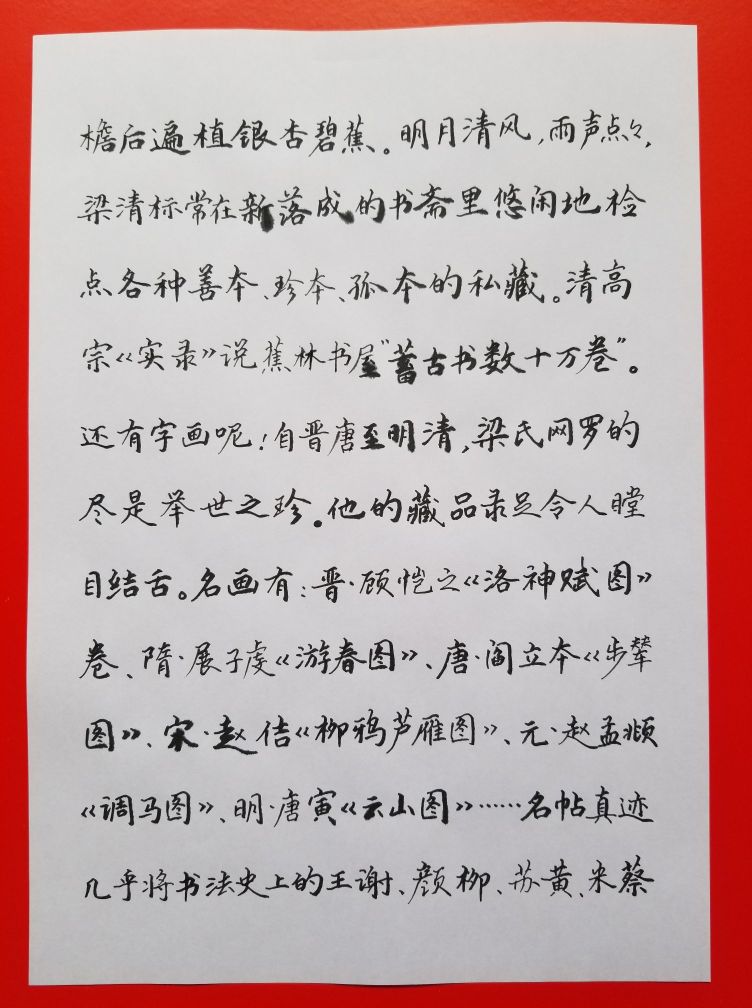 檐后遍植银杏碧蕉。明月清风,雨声点々,
梁清标常在新落成的书斋里悠闲地检
点各种善本、珍本、孤本的私藏。清高
宗《实录》说蕉林书屋"蓄古书数十万卷"。
还有字画呢!自晋唐至明清,梁氏网罗的
尽是举世之珍。他的藏品录足令人瞠
目结舌。名画有:晋·顾恺之《洛神赋图》
卷、隋·展子虔《游春图》、唐·阎立本《步辇
图》、宋·赵佶《柳鸦芦雁图》、元·赵孟頫
《调马图》、明·唐寅《云山图》……名帖真迹
几乎将书法史上的王谢、颜柳、苏黄、米蔡